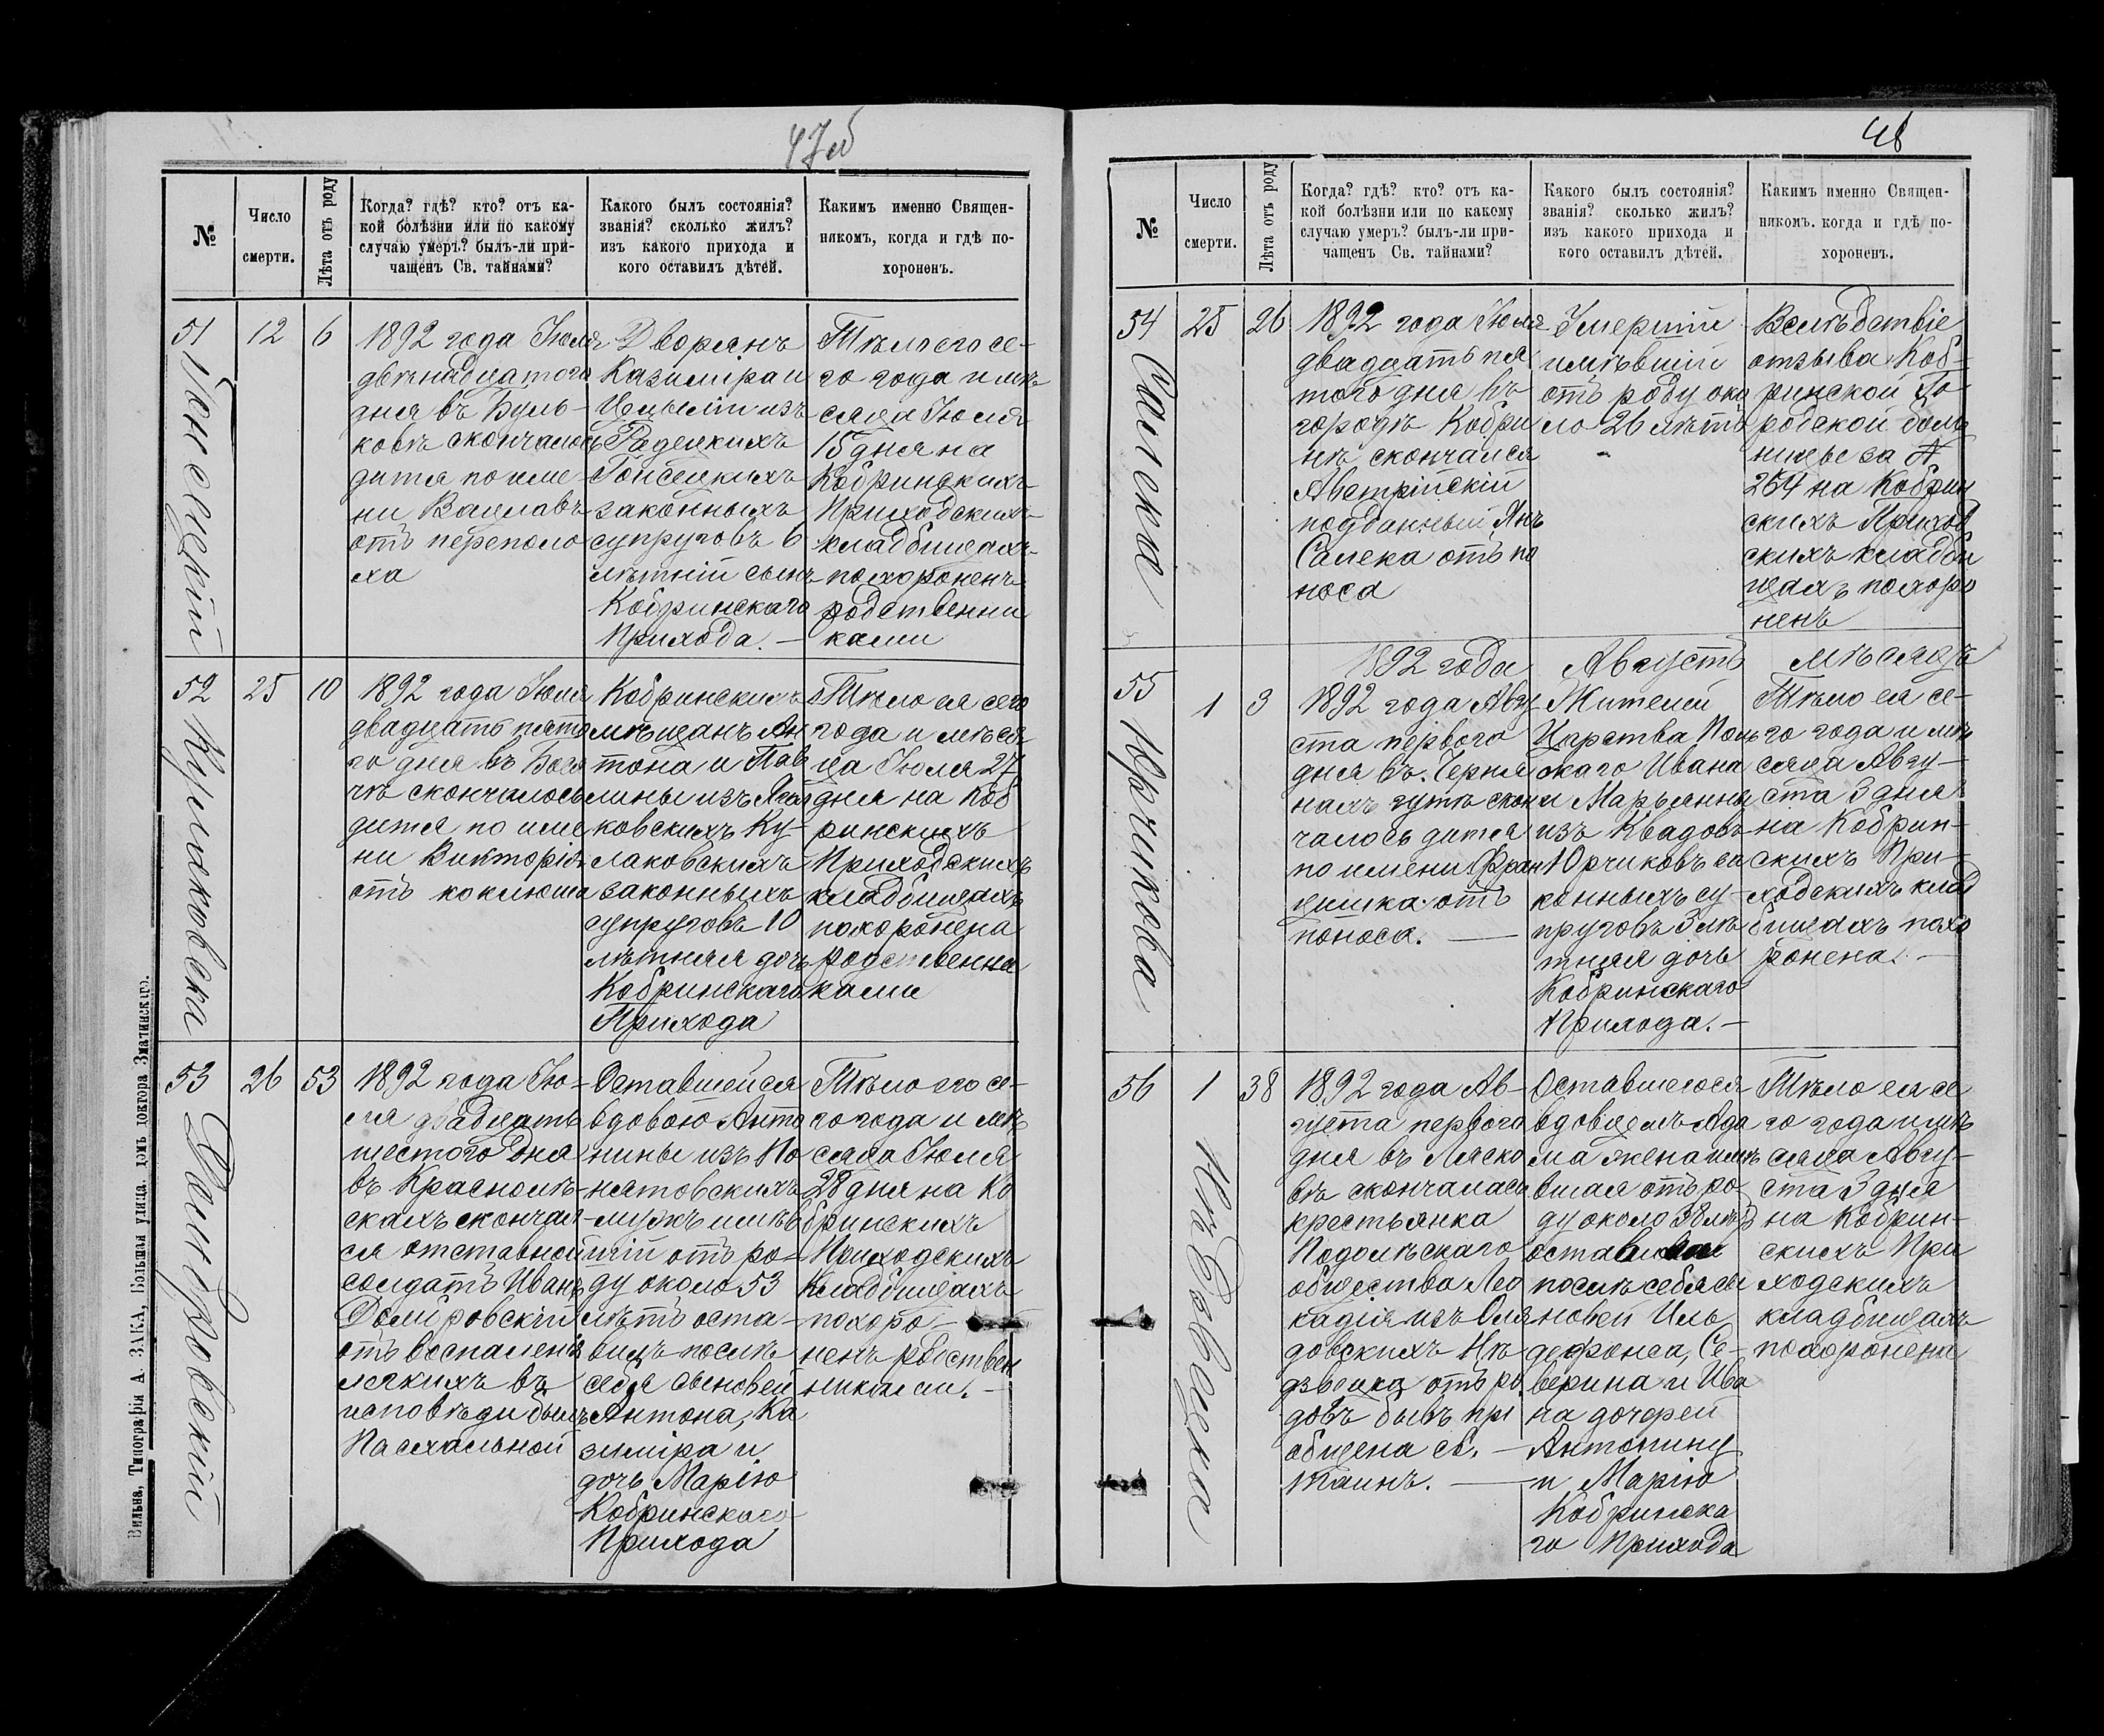 47об
№
Число
смерти.
Лѣта отъ роду
Когда? гдѣ? кто? отъ ка-
кой болѣзни или по какому
случаю умеръ? былъ-ли при-
чащенъ Св. тайнами?
Какого былъ состоянія?
званія? сколько жилъ?
изъ какого прихода и
кого оставилъ дѣтей.
Какимъ именно Священ-
никомъ, когда и гдѣ по-
хороненъ.
51
12
6
1892 года Іюля
двѣнадцатого
дня въ Буль-
ковѣ скончалось
дитя по име-
ни Вацлавъ
отъ переполо
ха
Дворянъ
Казимира и
изъ
законныхъ
супруговъ 6
лѣтній сынъ
Кобринскаго
Прихода. —
Тѣло его се-
го года и мѣ
сяца Іюля
15 дня на
Кобринскихъ
Приходскихъ
кладбищахъ
похороненъ
родственни
ками
52
Кулаковска
25
10
1892 года Іюля
двадцать пято
го дня въ
скончалось
дитя по име
ни Викторія
отъ коклюша
Кобринскихъ
мѣщанъ Ан
тона и Пав
лины изъ
ковскихъ Ку-
лаковскихъ
законныхъ
супруговъ 10
лѣтняя дочь
Кобринскаго
Прихода
Тѣло ея сего
года и мѣся
ца Іюля 27
дня на Коб
ринскихъ
Приходскихъ
кладбищахъ
похоронена
родственни
ками
53
Домбровскій
26
53
1892 года Ію-
ля двадцать
шестого дня
въ
скахъ скончал-
ся отставной
солдатъ Иванъ
Домбровскій
отъ воспаленія
легкихъ въ
исповѣди былъ
Пасхальной
Оставшейся
вдовою Анто
нины изъ По
нятовскихъ
мужъ имѣв
шій отъ ро-
ду около 53
лѣтъ оста-
вилъ послѣ
себя сыновей
Антона, Ка
зиміра и
дочь Марію
Кобринскаго
Прихода
Тѣло его се-
го года и мѣ
сяца Іюля
28 дня на Ко
бринскихъ
Приходскихъ
Кладбищахъ
похоро-
ненъ родствен
никами. —
Вильна, Типографія А. ЗАКА, Большая улица. домъ доктора Зматинскаго.
48
№
Число
смерти.
Лѣта отъ роду
Когда? гдѣ? кто? отъ ка-
кой болѣзни или по какому
случаю умеръ? былъ-ли при-
чащенъ Св. тайнами?
Какого былъ состоянія?
званія? сколько жилъ?
изъ какого прихода и
кого оставилъ дѣтей.
Какимъ именно Священ-
никомъ. когда и гдѣ по-
хороненъ.
54
Салека
25
26
1892 года Іюля
двадцать пя
того дня въ
городѣ Кобри
нѣ скончался
Австрійскій
подданный Янъ
Салека отъ по
носа
Умершій
имѣвшій
отъ роду око
ло 26 лѣтъ
Вслѣдствіе
отзыва Коб-
ринской Го
родской боль
ницы за №
264 на Кобрин
скихъ Приход
скихъ кладби
щахъ похоро
ненъ
1892 года Августъ мѣсяцъ
55
Юрчикова
1
3
1892 года Авгу
ста перваго
дня въ Черня
нахъ скон
чалось дитя
по имени Фран
цишка отъ
поноса. —
Жителей
Царства Поль
скаго Ивана
и Марьянны
изъ Квадовъ
Юрчиковъ за
конныхъ су-
пруговъ 3 лѣ
тняя дочь
Кобринскаго
Прихода. —
Тѣло ея се-
го года и мѣ
сяца Авгу-
ста 3 дня
на Кобрин-
скихъ При-
ходскихъ клад
бищахъ похо
ронена. —
56
Нѣдзвецка
1
38
1892 года Ав-
густа перваго
дня въ Ляско
вѣ скончалась
крестьянка
общества Лео
кадія изъ Оля
довскихъ Нѣ
дзвецка отъ ро
довъ бывъ прі
общена св. —
таинъ. —
Оставшегося
вдовцемъ Ада
ма жена имѣ
вшая отъ ро
ду около 38 лѣтъ
оставила
послѣ себя сы
новей Иль
дефонса, Се-
верина и Ива
на дочерей
Антонину
и Марію
Кобринска
го Прихода
Тѣло ея се
го года и мѣ
сяца Авгу-
ста 3 дня
на Кобрин-
скихъ При
ходскихъ
кладбищахъ
похоронена